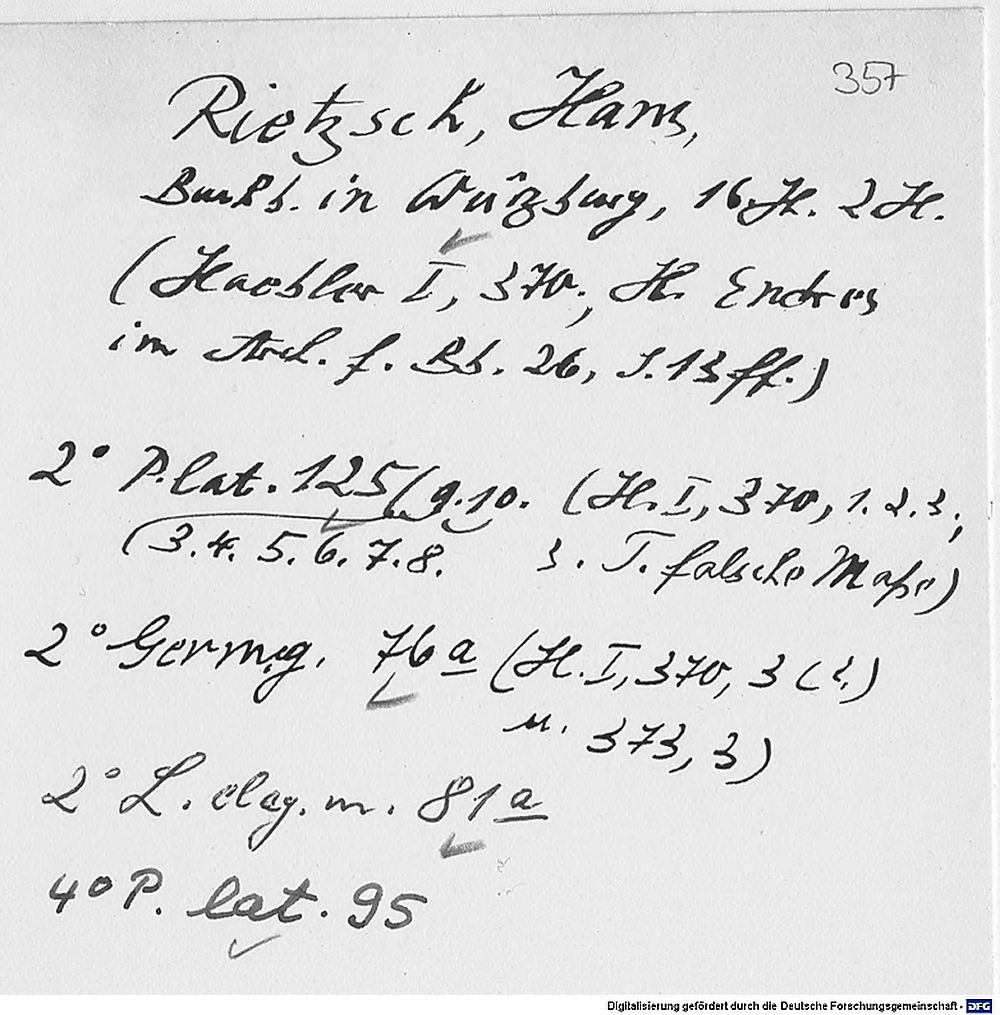 357
Rietzsch, Hans,
Buchb. in Würzburg, 16. Jh. 2 H.
(Haebler I, 370; H. Endres
im Arch. f. Bb. 26, S. 13 ff.)
2° P. lat. 125 (9.10. (H. I, 370, 1. 2. 3;
(3. 4. 5. 6. 7. 8. 3. T. falsche Maße)
2° Germ. g. 76 a (H. I, 370, 3 (?)
u. 373, 3)
2° L. eleg. m. 81 a
4° P. lat. 95
Digitalisierung gefördert durch die Deutsche Forschungsgemeinschaft - DFG